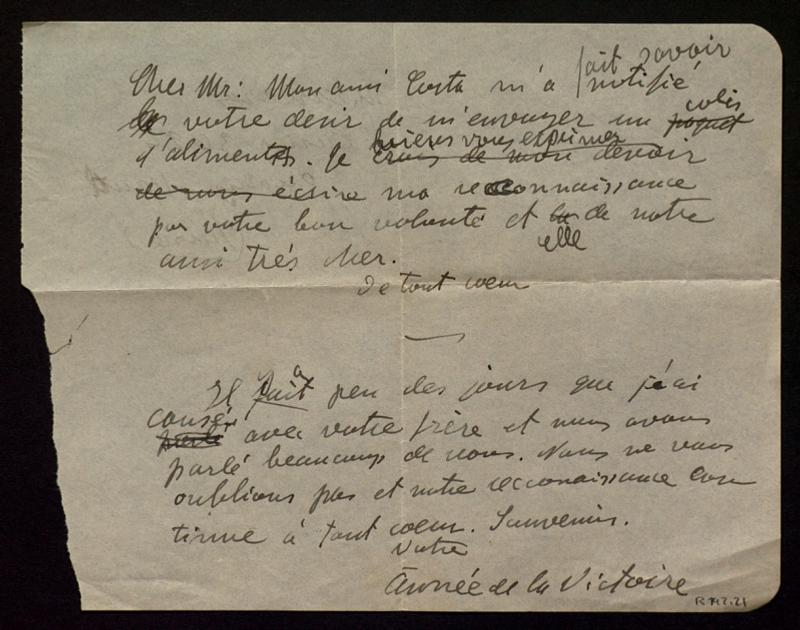 fait savoir
Cher Mr: Mon ami Costa m'a notifié
votre desir de m'envoyer un paquet colis
d'aliments. Je crois de mon devoir
vous exprimer
de vous écrire ma reconnaissance
par votre bon volonté et la de notre
elle
ami trés cher.
De tout coeur
Il fait a peu des jours que j'ai
causé
parlé avec votre frère et nous avons
parlé beaucoup de vous. Nous ne vous
oublions pas et notre reconnaissance con
tinue à tout coeur. Souvenirs.
Votre
Année de la Victoire
R 747.21